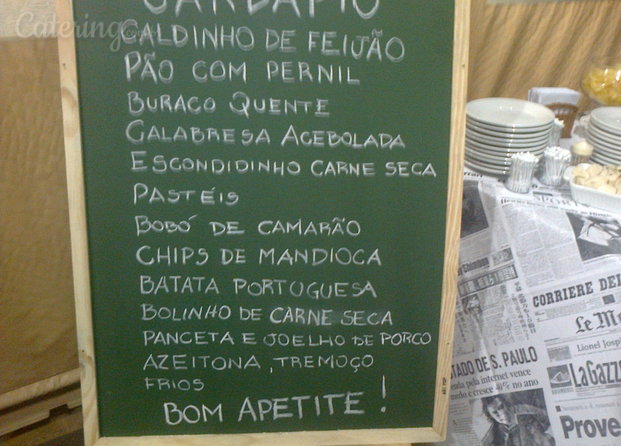 Catering
CARDÁPIO
CALDINHO DE FEIJÃO
PÃO COM PERNIL
BURACO QUENTE
CALABRESA ACEBOLADA
ESCONDIDINHO CARNE SECA
PASTÉIS
BOBÓ DE CAMARÃO
CHIPS DE MANDIOCA
BATATA PORTUGUESA
BOLINHO DE CARNE SECA
PANCETA E JOELHO DE PORCO
AZEITONA, TREMOÇO
FRIOS
BOM APETITE!
SPORTS
CORRIERE DEL
Le Mo
Lionel Josp
TADO DE S. PAULO
pela internet vence
e cresce 40% no ano
LaGazz
Prove